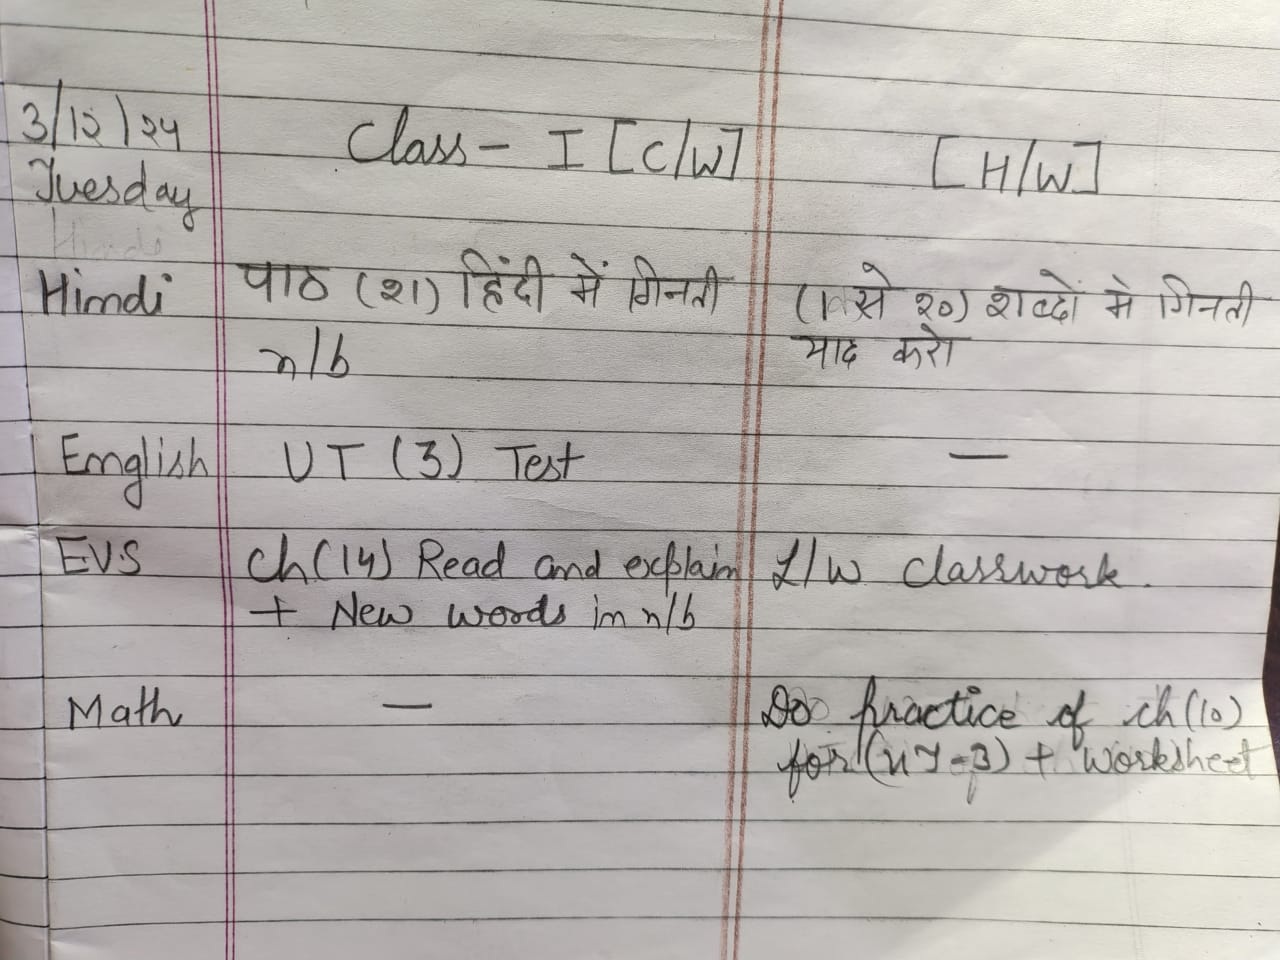 3/12/24 Class - I [C/W] [H/W]
Tuesday
Hindi
Hindi पाठ (२१) हिंदी में गिनती (1 से २०) शब्दों मे गिनती
n/b याद करो
English UT (3) Test —
EVS Ch(14) Read and explain L/W classwork.
+ New words in n/b
Math — Do practice of ch(10)
for (UT-3) + Worksheet